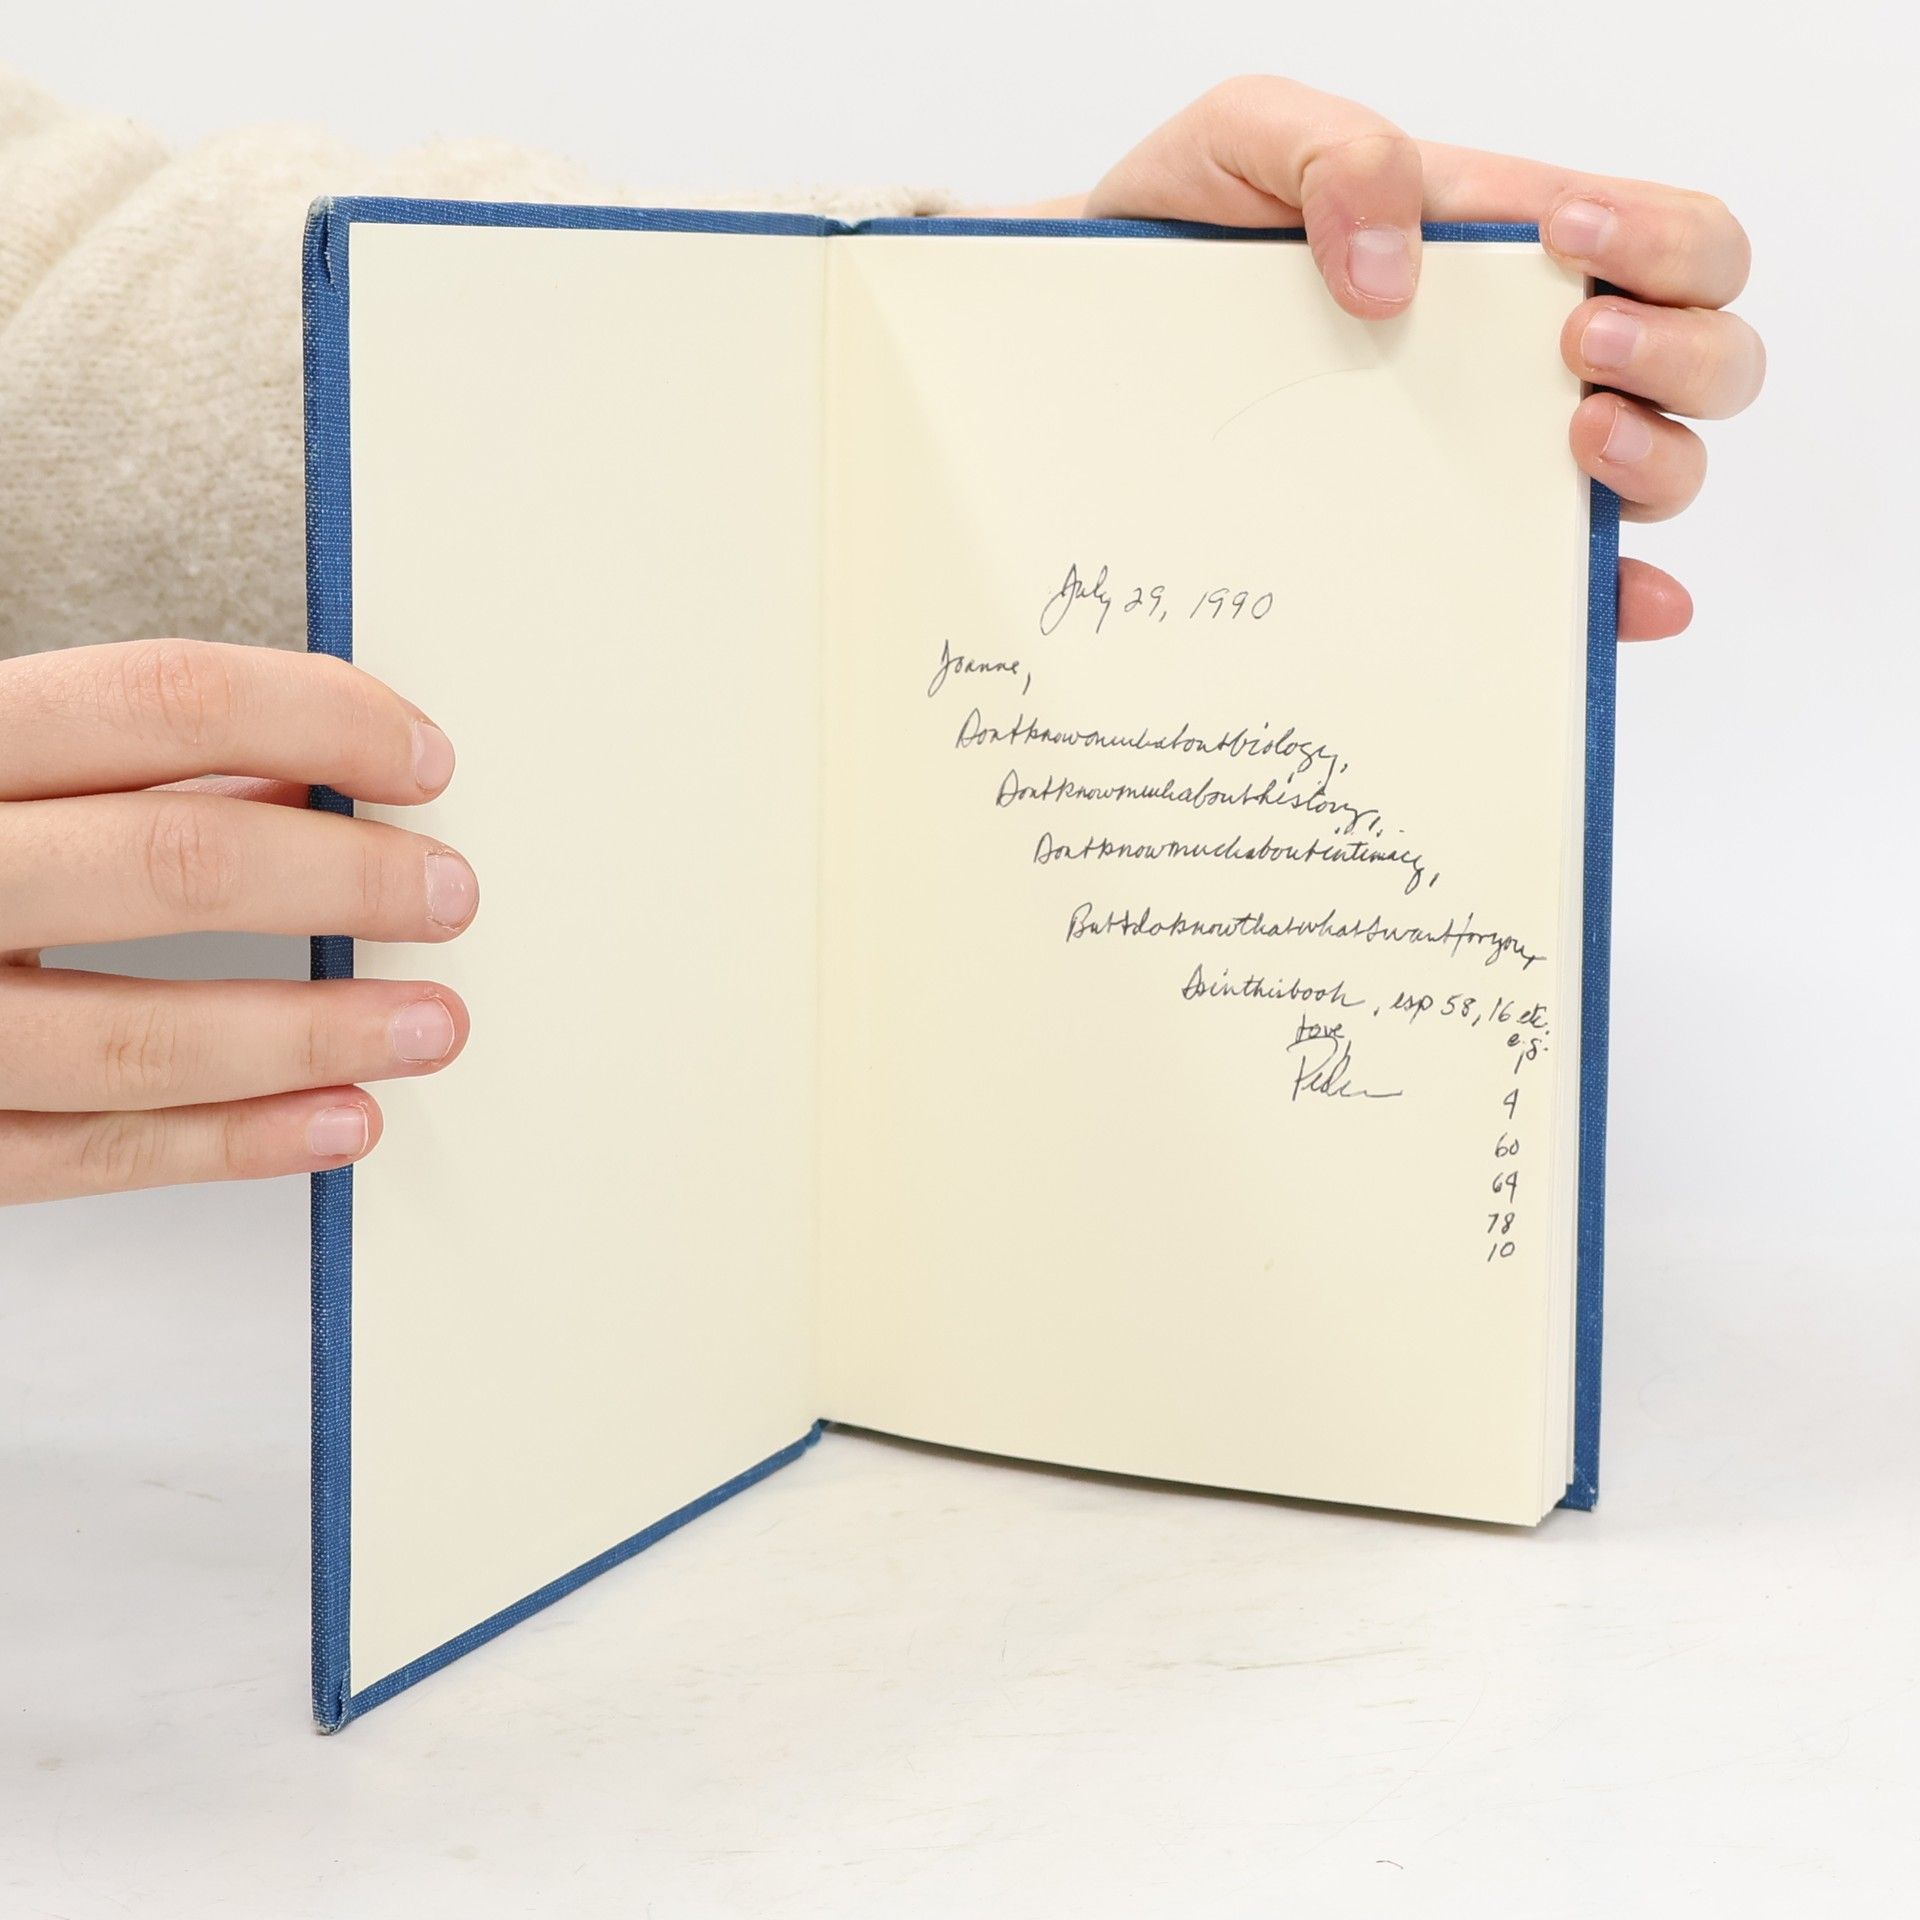 July 29, 1990
Joanne,
Dontknowmuchaboutbiology,
Dontknowmuchabouthistory,
Dontknowmuchaboutintimacy,
ButIdoknowthatwhatIwantforyou,
Isinthisbook, esp 58, 16 etc.
e.g.
Love,
4
60
64
78
10